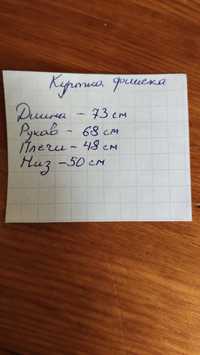 Куртка флиска
Длина - 73 см
Рукав - 68 см
Плечи - 48 см
Низ - 50 см